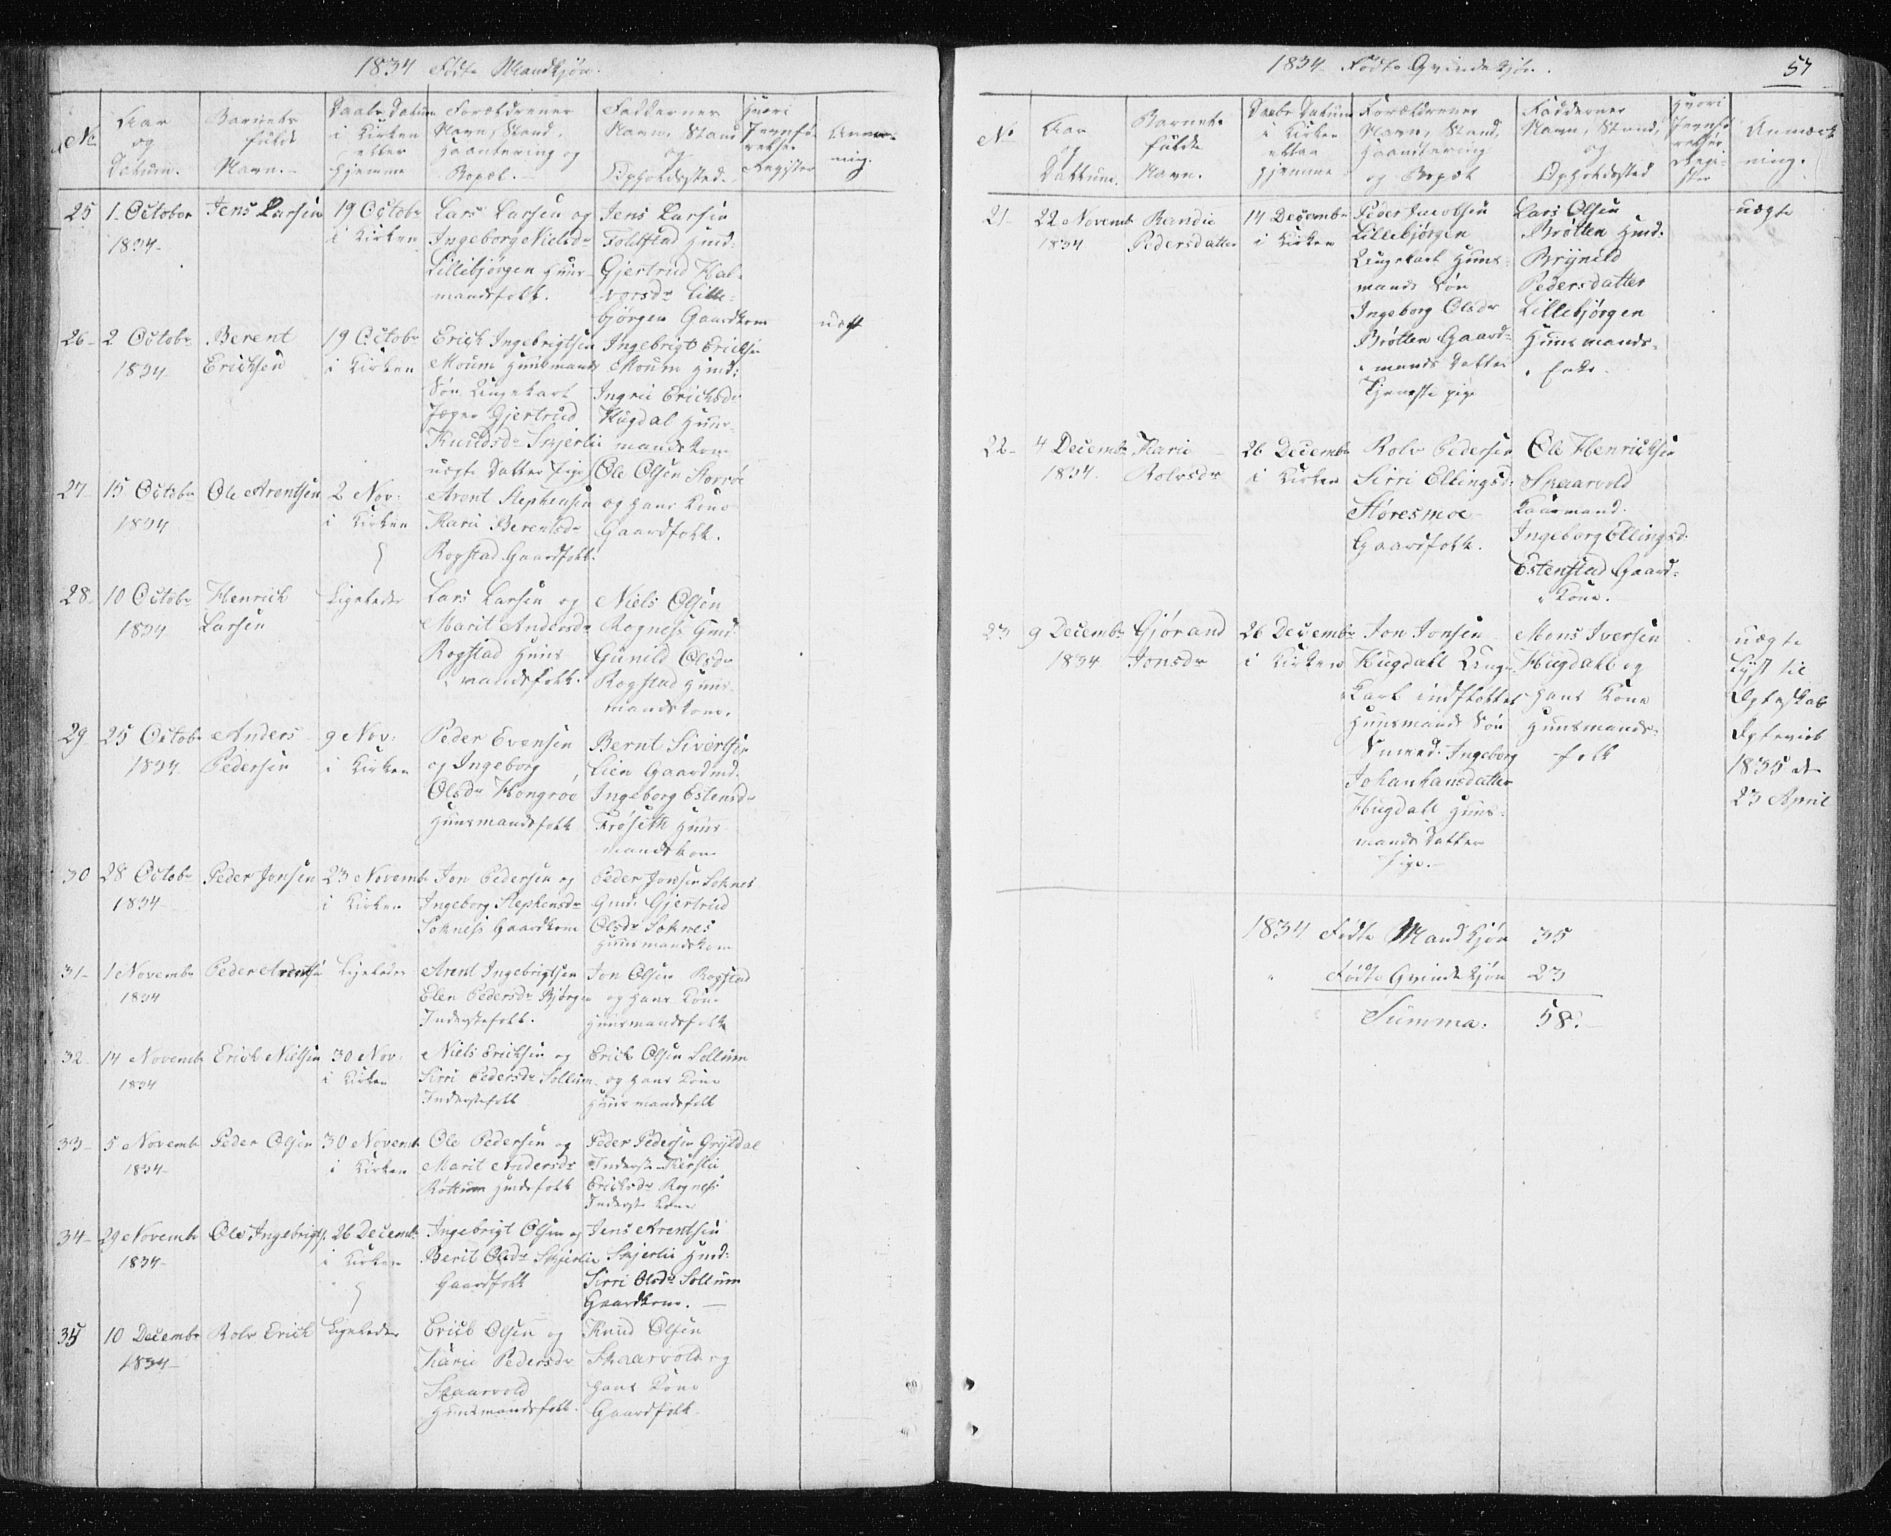 1834 Fødte Mandkjøn.
No
Aar
og
Datum.
Barnets
fulde
Navn.
Daabs Datum
i Kirken
eller
hjemme
Forældrenes
Navn, Stand,
Haandtering og
Bopæl.
Faddernes
Navn, Stand
og
Opholdssted.
Hvori
Jevnfø
relses
Register
Anmærk
ning.
25
1. October
1834
Jens Larsen
19 Octobr
i Kirken
Lars Larsen og
Ingeborg Nielsdr
Lillebjørgen Huus
mandsfolk.
Jens Larsen
Foldstad Gmd:
Gjertrud Hal-
vorsdr Lille-
bjørgen Gaardkone
26
2 Octobr
1834
Berent
Ericksen
19 Octobr
i Kirken
Erick Ingebrigtsen
Moum Huusmands
Søn Ungekarl
Gjertrud
Knudsdr Skjerlie
uægte Datter Pige
Ingebrigt Ericksen
Moum Hmd:
Ingrii Ericksdr
Hugdal Huus-
mandskone
uægt
27
15 Octobr
1834
Ole Arentsen
2 Nov:
i Kirken
Arent Stephensen
Karii Berentsdr
Rogstad Gaardfolk.
Ole Olsen Storrøe
og hans Kone
Gaardfolk.
28
10 Octobr
1834
Henrick
Larsen
Ligeledes
Lars Larsen og
Marit Andersdr
Rogstad Huus
mandsfolk.
Niels Olsen
Rogness Gmd:
Gunild Olsdr
Rogstad Huus-
mandskone.
29
25 Octobr
1834
Anders
Pedersen
9 Nov:
i Kirken
Peder Evensen
og Ingeborg
Olsdr Hongroe
Huusmandsfolk
Bernt Sivertsen
Lien Gaardmd.
Ingeborg Estensdr
Frøseth Huus
mandskone
30
28 Octobr
1834
Peder Jonsen
23 Novembr
i Kirken
Jon Pedersen og
Ingeborg Stephensdr
Sokness Gaardkone
Peder Jonsen Soknes
Gmd. Gjertrud
Olsdr Soknes
Huusmandskone
31
1 Novembr
1834
Peder Arentsen
Ligeledes
Arent Ingebrigtsen
Elen Pedersdr Bjørgen
Inderstefolk.
Jon Olsen Rogstad
og hans Kone
Huusmandsfolk
32
14 Novembr
1834
Erick Nielsen
30 Nov:
i Kirken
Niels Ericksen og
Sirri Pedersdr Sollum
Inderstefolk
Erick Olsen Sollum
og hans Kone
Huusmandsfolk
33
5 Novembr
1834
Peder Olsen
30 Novembr
i Kirken
Ole Pedersen og
Marit Andersdr
Røttum Hmdsfolk
Peder Pedersen Gryttdal
Inderst Kerstie
Ericksdr Rogness
Inderst Kone
34
29 Novembr
1834
Ole Ingebrigts.
26 Decembr
i Kirken
Ingebrigt Olsen og
Berit Olsdr Skjerlie
Gaardfolk
Jens Arentsen
Skjerlie Hmd:
Sirri Olsdr Sollum
Gaardkone.
35
10 Decembr
1834
Rolv Erick
Ligeledes
Erick Olsen og
Karii Pedersdr
Skaarvold
Huusmandsfolk.
Knud Olsen
Skaarvold og
hans Kone
Gaardfolk
1834 Fødte Qvindekjøn.
57
No
Aar
og
Dattum.
Barnets
fulde
Navn.
Daabs Datum
i Kirken
eller
hjemme
Forældrenes
Navn, Stand,
Haandtering
og Bopæl
Faddernes
Navn, Stand,
og
Opholdssted
Hvori
Jevnfø
relses
Regi-
ster
Anmærk
ning.
21
22 Novemb
1834
Randie
Pedersdatter
14 Decembr
i Kirken
Peder Jacobsen
Lillebjørgen
Ungekarl Huus-
mands Søn
Ingeborg Olsdr
Brøtten Gaard-
mands Datter
Tjenestepige
Lars Olsen
Brøtten Gmd.
Brynild
Pedersdatter
Lillebjørgen
Huusmands-
Enke
uægte
22
4 Decembr
1834.
Karii
Rolvsdr
26 Decembr
i Kirken
Rolv Pedersen
Sirri Ellingsd.
Støresmoe
Gaardfolk.
Ole Henricksen
Skaarvold
Kaarmand.
Ingeborg Ellingsd.
Estenstad Gaard-
Kone.
23
9 Decembr
1834
Gjørand
Jonsdr
26 Decembr
i Kirken
Jon Jonsen
Hugdall Unge
Karl indflöttet
Huusmands Søn
Smed. Ingeborg
Johanhansdatter
Hugdall Huus-
mands Datter
Pige.
Mons Iversen
Hugdall og
hans Kone
Huusmands-
folk
uægte
Lyst til
Egteskab
Egteviet
1835 d
23 April
1834 Fødte Mandkjøn 35
" Fødte Qvindekjøn 23
Summa: 58.